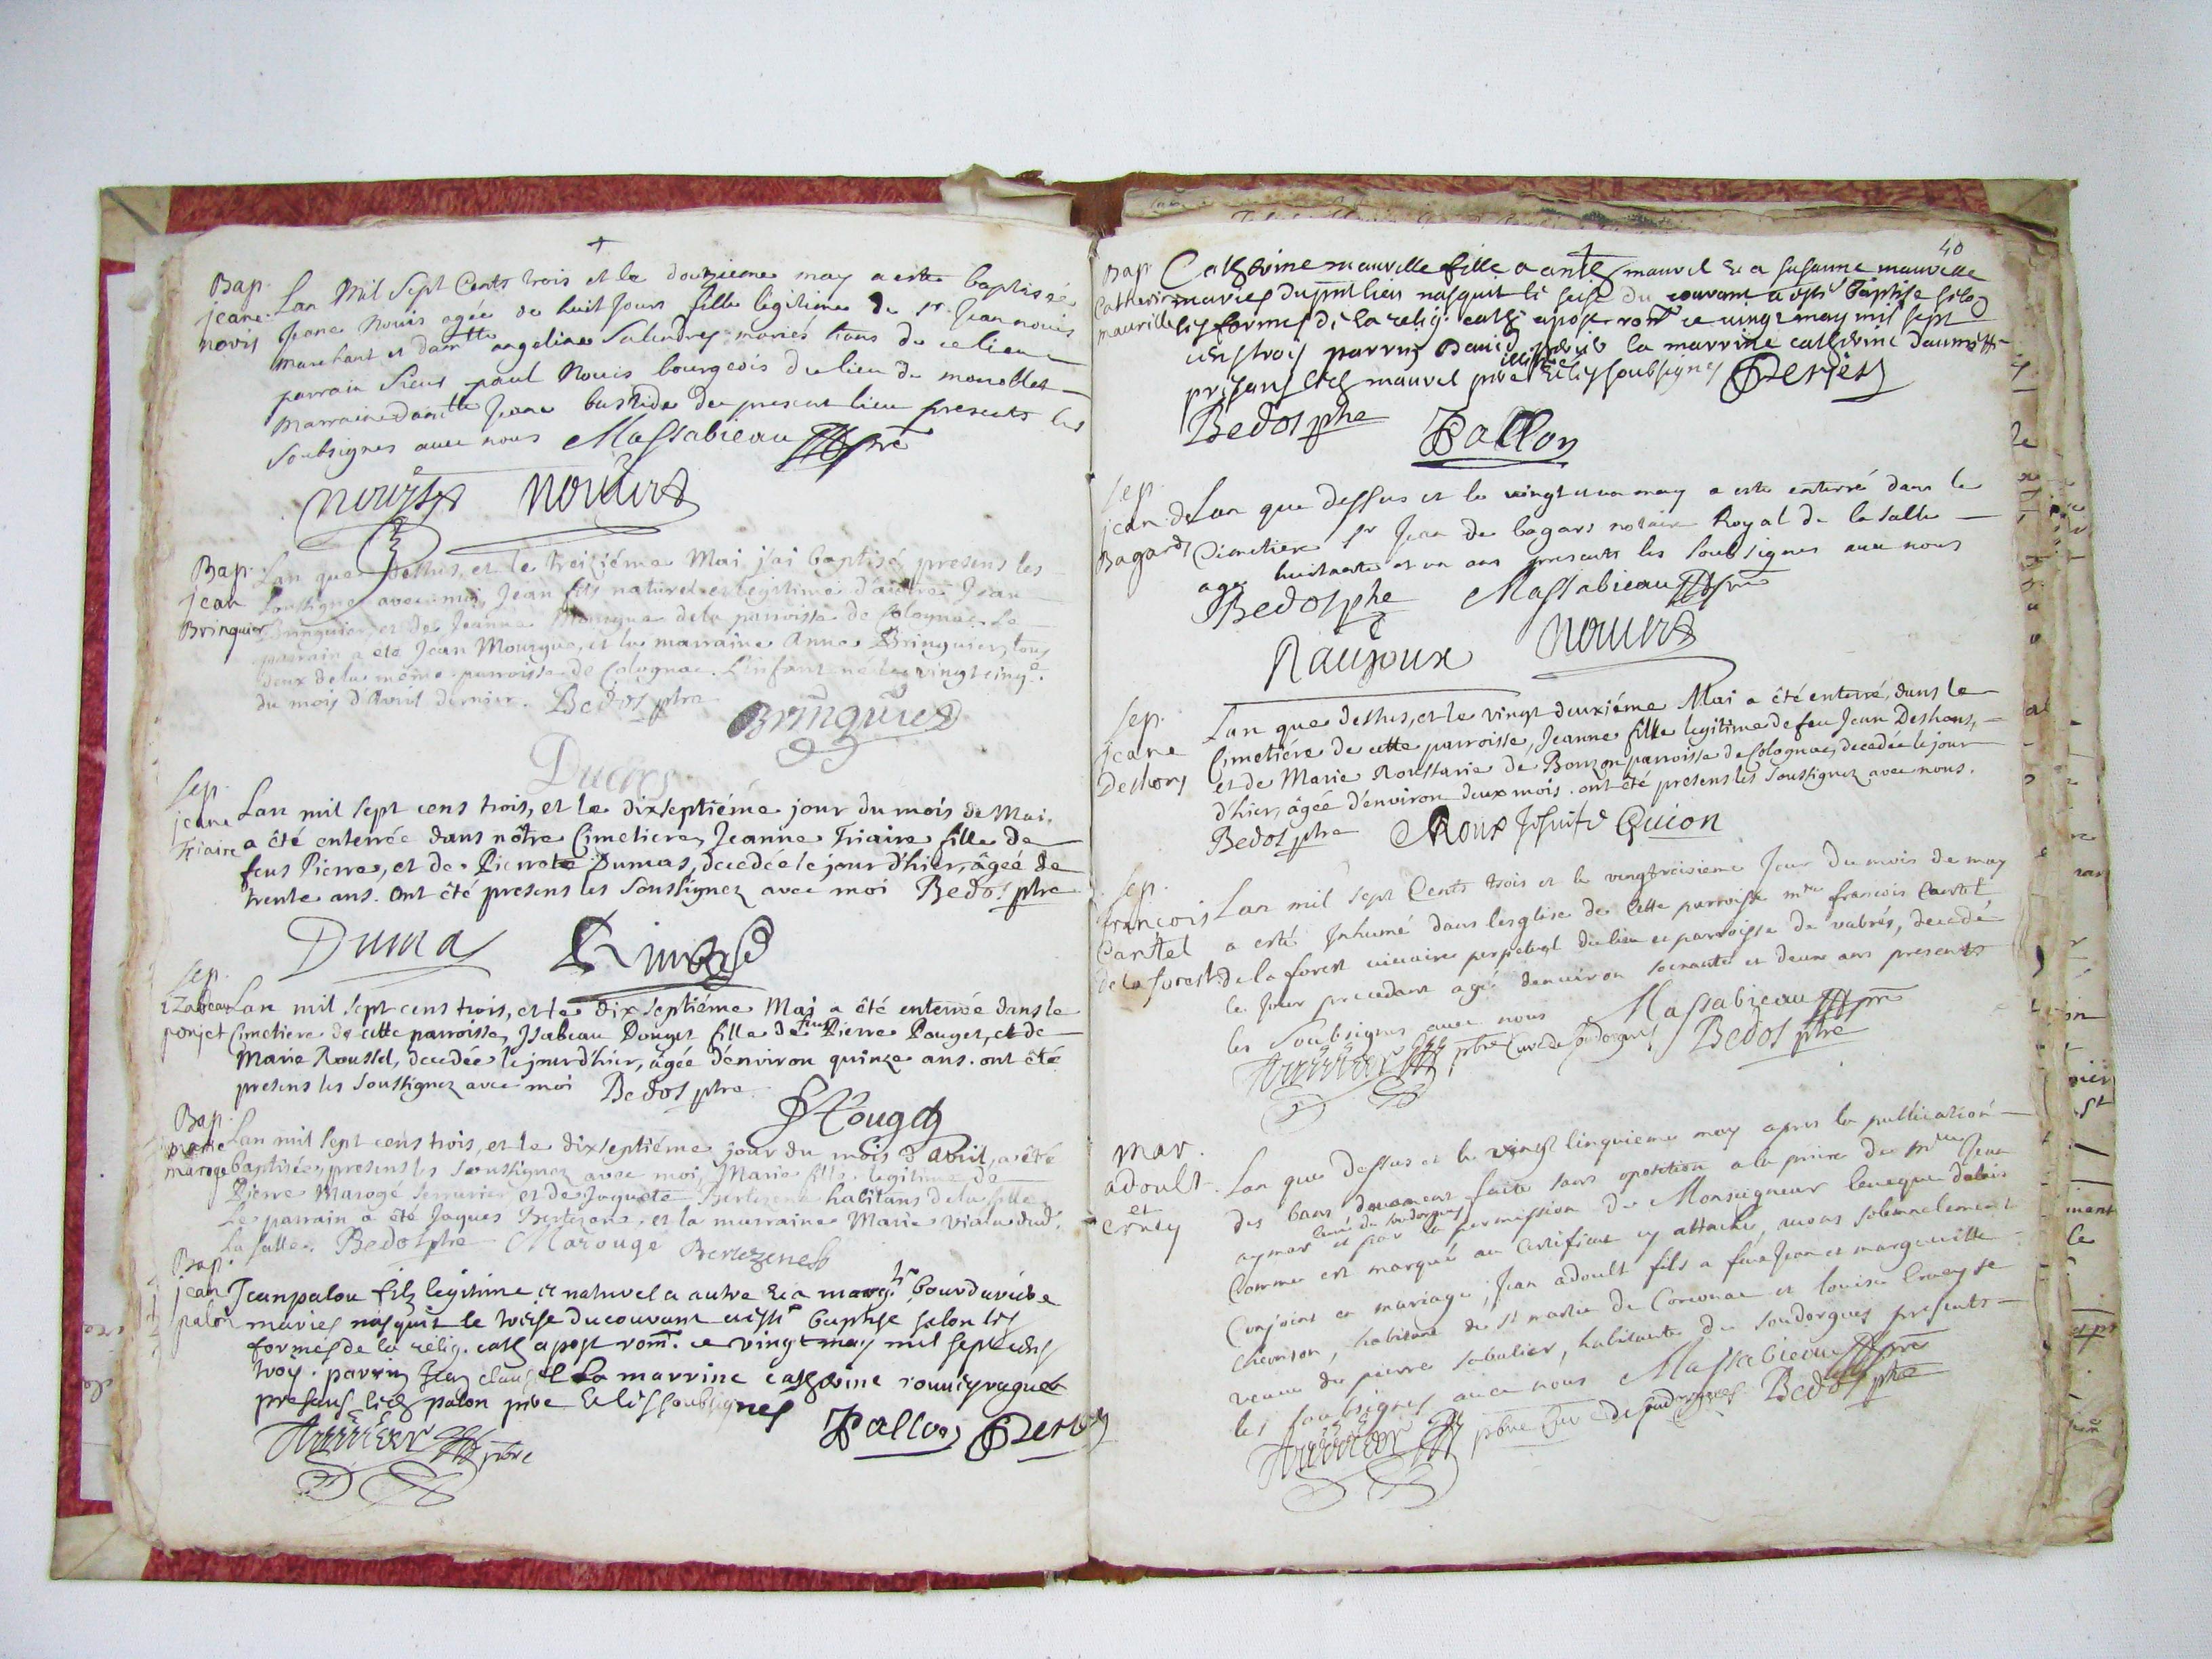 Bap.
jeane
novis
Lan Mil Sept Cents trois et le douzieme may a esté baptisée
Jeane Novis agée de huit Jours fille legitime de sr. Jean novis
marchant et damlle angeline Salendres mariés tous de ce lieu
parrain sieur paul Novis bourgeois du lieu de monoblet
Marraine damlle Jeane bastide du present lieu presents les
soubsignes avec nous Massabieau pre
novis novis
Bap.
jean
Bringuier
Lan que dessus, et le treiziéme Mai j'ai baptisé, presens les
soussignez avec moi, Jean fils naturel et legitime d'autre Jean
Bringuier, et de Jeanne Mourgue de la parroisse de Colognac. Le
parrain a été Jean Mourgue, et la marraine Anne Bringuier, tous
deux de la même parroisse de Colognac. L'enfant né le vingt cinq.e
du mois d'Avril dernier. Bedos ptre
Bringuier
Ducros
Sep.
jeane
Triaire
Lan mil sept cens trois, et le dixseptiéme jour du mois de Mai.
a été enterrée dans nôtre Cimetiere, Jeanne Triaire fille de
feus Pierre, et de Pierrote Dumas, decedée le jour d'hier, âgée de
trente ans. Ont été presens les soussignez avec moi Bedos ptre
Dumas
Sep.
izabeau
ponjet
Lan mil sept cens trois, et le dix septiéme Mai a été enterrée dans le
Cimetiere de cette parroisse, Isabeau Pouget fille de feu Pierre Pouget, et de
Marie Roussel, decedée le jour d'hier, âgée d'environ quinze ans. ont été
presens les soussignez avec moi Bedos ptre
Pouget
Bap.
marie
maroge
Lan mil sept cens trois, et le dixseptiéme jour du mois d'Avril, a été
baptisée, presens les soussignez avec moi, Marie fille legitime de
Pierre Marogé serrurier, et de Juquete Bertezene habitans de la salle
Le parrain a été Jaques Bertezene, et la marraine Marie viala dud.
La salle. Bedos ptre Marougé Bertezene
Bap.
jean
palon
Jean palou fils legitime et naturel a autre et a marg.te bourduriere
mariés nasquit le treise du courant a esté baptise selon les
formes de la relig. cath apost rom. ce vingt may mil sept cens
trois. parrin Jean clauzel La marrine catherine
presens led palon pere et les soubsignes
pbre Pallon
40
Bap.
Catherine
maurille
Catherine mauvelle fille a anth mauvel et a susanne mauvelle
mariés du pnt lieu nasquit le seise du couvant a esté baptise selon
les formes de la relig. cath apost rom ce vingt may mil sept
cens trois parrin David la marrine catherine
presens led mauvel pere et les soubsignes
Bedos ptre Pallon
Sep.
jean de
Bagards
Lan que dessus et le vingt et un may a esté enterré dans le
Cimetiere sr Jean de bagars notaire Royal de la salle
agé huitante et un ans presents les soubsignes avec nous
Bedos ptre Massabieau pre
Raujoux novis
Sep.
jeane
Deshons
Lan que dessus, et le vingt deuxiéme Mai a été enterré, dans le
Cimetiére de cette parroisse, Jeanne fille legitime de feu Jean Deshons,
et de Marie Roussarie de Bouzon parroisse de Colognac, decedée le jour
d'hier, âgée d'environ deux mois. ont été presens les soussignez avec nous.
Bedos ptre Roux Jesuite Guion
Sep.
françois
Cantel
de la forest
Lan mil Sept Cents trois et le vingtroisieme Jour du mois de may
a esté Inhumé dans lesglise de cette parroisse mre francois Cantel
de la forest vicaire perpetuel du lieu et parroisse de vabres, decedé
le Jour precedent agé denviron soixante et deux ans presents
les Soubsignes avec nous Massabieau pre
pbre Curé de soudorgues Bedos ptre
mar.
adoult
et
Lan que dessus et le vingt cinquieme may apres la publication
des bans deuement faite sans oposition a la priere de mre Jean
aymar curé de soudorgues et par la permission de Monseigneur leveque dalais
Comme est marqué au Certificat cy attaché, avons solemnelement
Conjoint en mariage, Jean adoult fils a feu Jean et marguerite
Chevriton, habitant de St martin de Corconac et louise
veuve de pierre sabatier, habitante de soudorgues presents
les soubsignes avec nous Massabieau pre
pbre Curé de soudorgues Bedos ptre